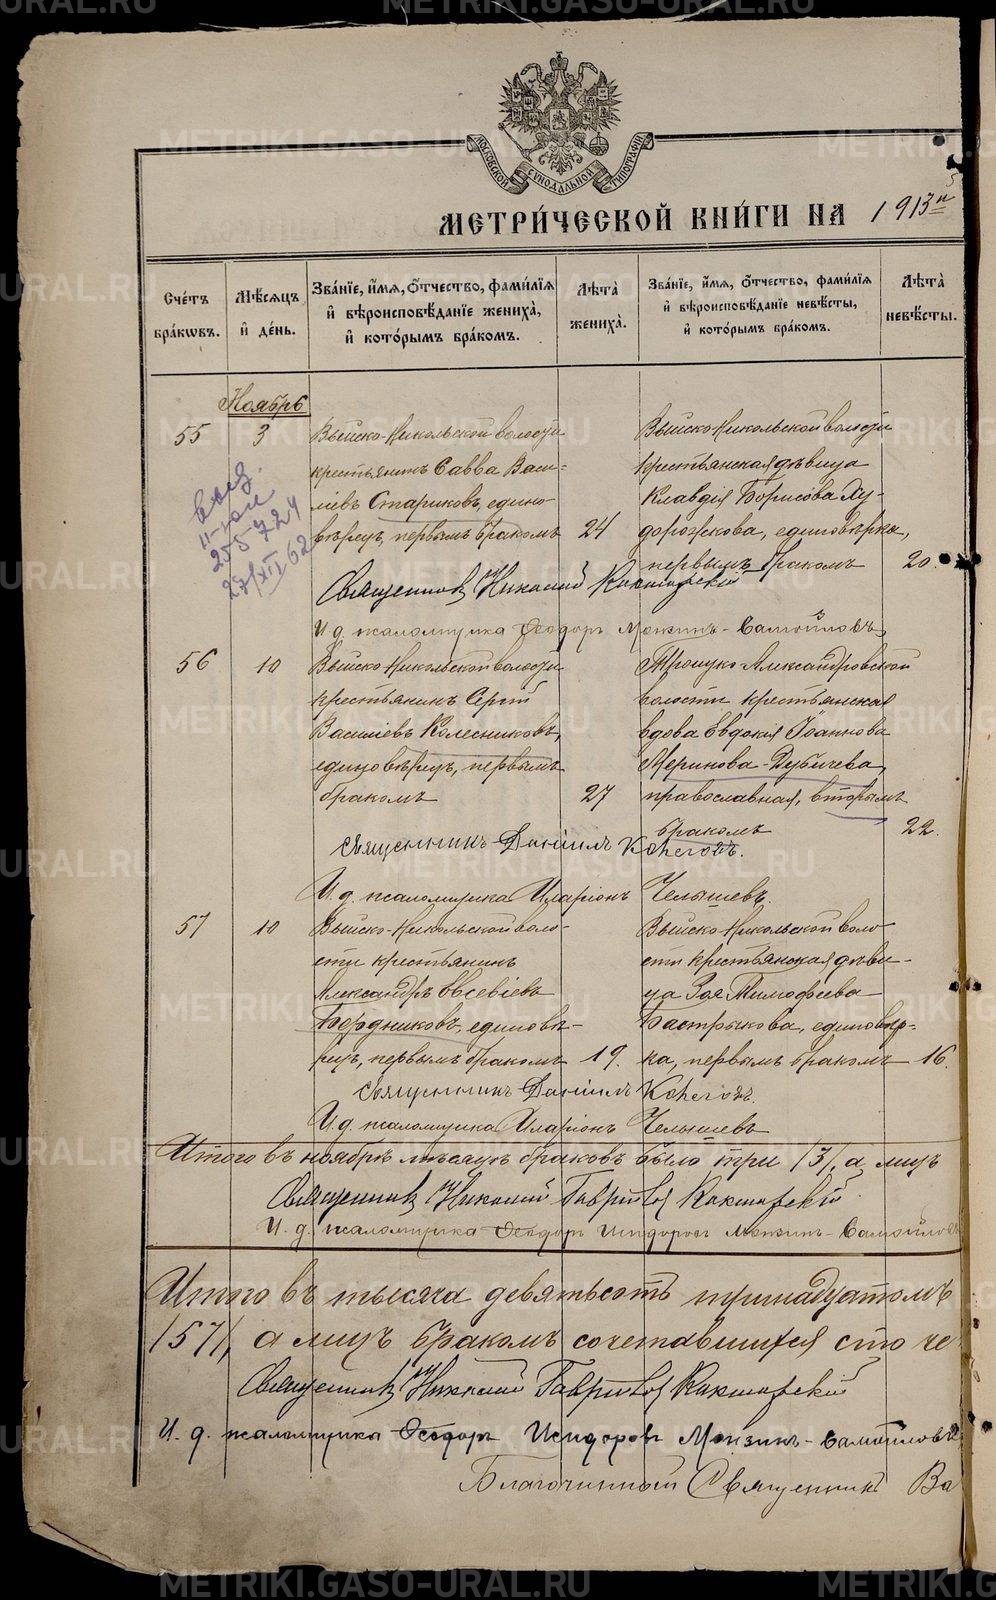 МОСКОВСКОЙ СУНОДАЛЬНОЙ ТИПОГРАФІИ
МЕТРИ́ЧЕСКОЙ КНИ́ГИ НА 1913
Сче́тъ бра́кωвъ.
Мѣ́сѧцъ и де́нь.
Зва́нїе, и́мѧ, ѻ́тчество, фами́лїѧ и вѣроисповѣ́данїе жениха̀, и кото́рымъ бра́комъ.
Лѣ́та̀ жениха̀.
Зва́нїе, и́мѧ, ѻ́тчество, фами́лїѧ и вѣроисповѣ́данїе невѣ́сты, и кото́рымъ бра́комъ.
Лѣ́та̀ невѣ́сты.
Ноябрь
55 3 Выйско-Никольской волости
крестьянинъ Савва Васи-
ліевъ Стариковъ, едино-
вѣрецъ, первымъ бракомъ 24
Выйско-Никольской волости
крестьянская дѣвица
Клавдія Борисова Ху-
дорожкова, единовѣрка,
первымъ бракомъ 20.
255-724
27/XII 62
Священникъ Николай
И. д. псаломщика Ѳеодоръ Мокзинъ-Самойловъ
56 10 Выйско-Никольской волости
крестьянинъ Сергій
Василіевъ Колесниковъ,
единовѣрецъ, первымъ
бракомъ 27
Троицко-Александровской
волости крестьянская
вдова Евдокія Іоаннова
Меринова-Дубичева,
православная, вторымъ
бракомъ 22.
Священникъ Даніилъ
И. д. псаломщика Иларіонъ Челышевъ.
57 10 Выйско-Никольской воло-
сти крестьянинъ
Александръ Евсевіевъ
Бородниковъ, единовѣ-
рецъ, первымъ бракомъ 19.
Выйско-Никольской воло-
сти крестьянская дѣви-
ца Зоя Тимофеева
Бастрыкова, единовѣр-
ка, первымъ бракомъ 16.
Священникъ Даніилъ
И. д. псаломщика Иларіонъ Челышевъ
Итого въ ноябрѣ мѣсяцѣ браковъ было три /3/, а лицъ
Священникъ Николай Гавриловъ
И. д. псаломщика Ѳеодоръ Исидоровъ Мокзинъ-Самойловъ
Итого въ тысяча девятьсотъ тринадцатомъ
/57/, а лицъ бракомъ сочетавшихся сто че
Священникъ Николай Гавриловъ
И. д. псаломщика Ѳеодоръ Исидоровъ Мокзинъ-Самойловъ
Благочинный Священникъ Ва
METRIKI.GASO-URAL.RU